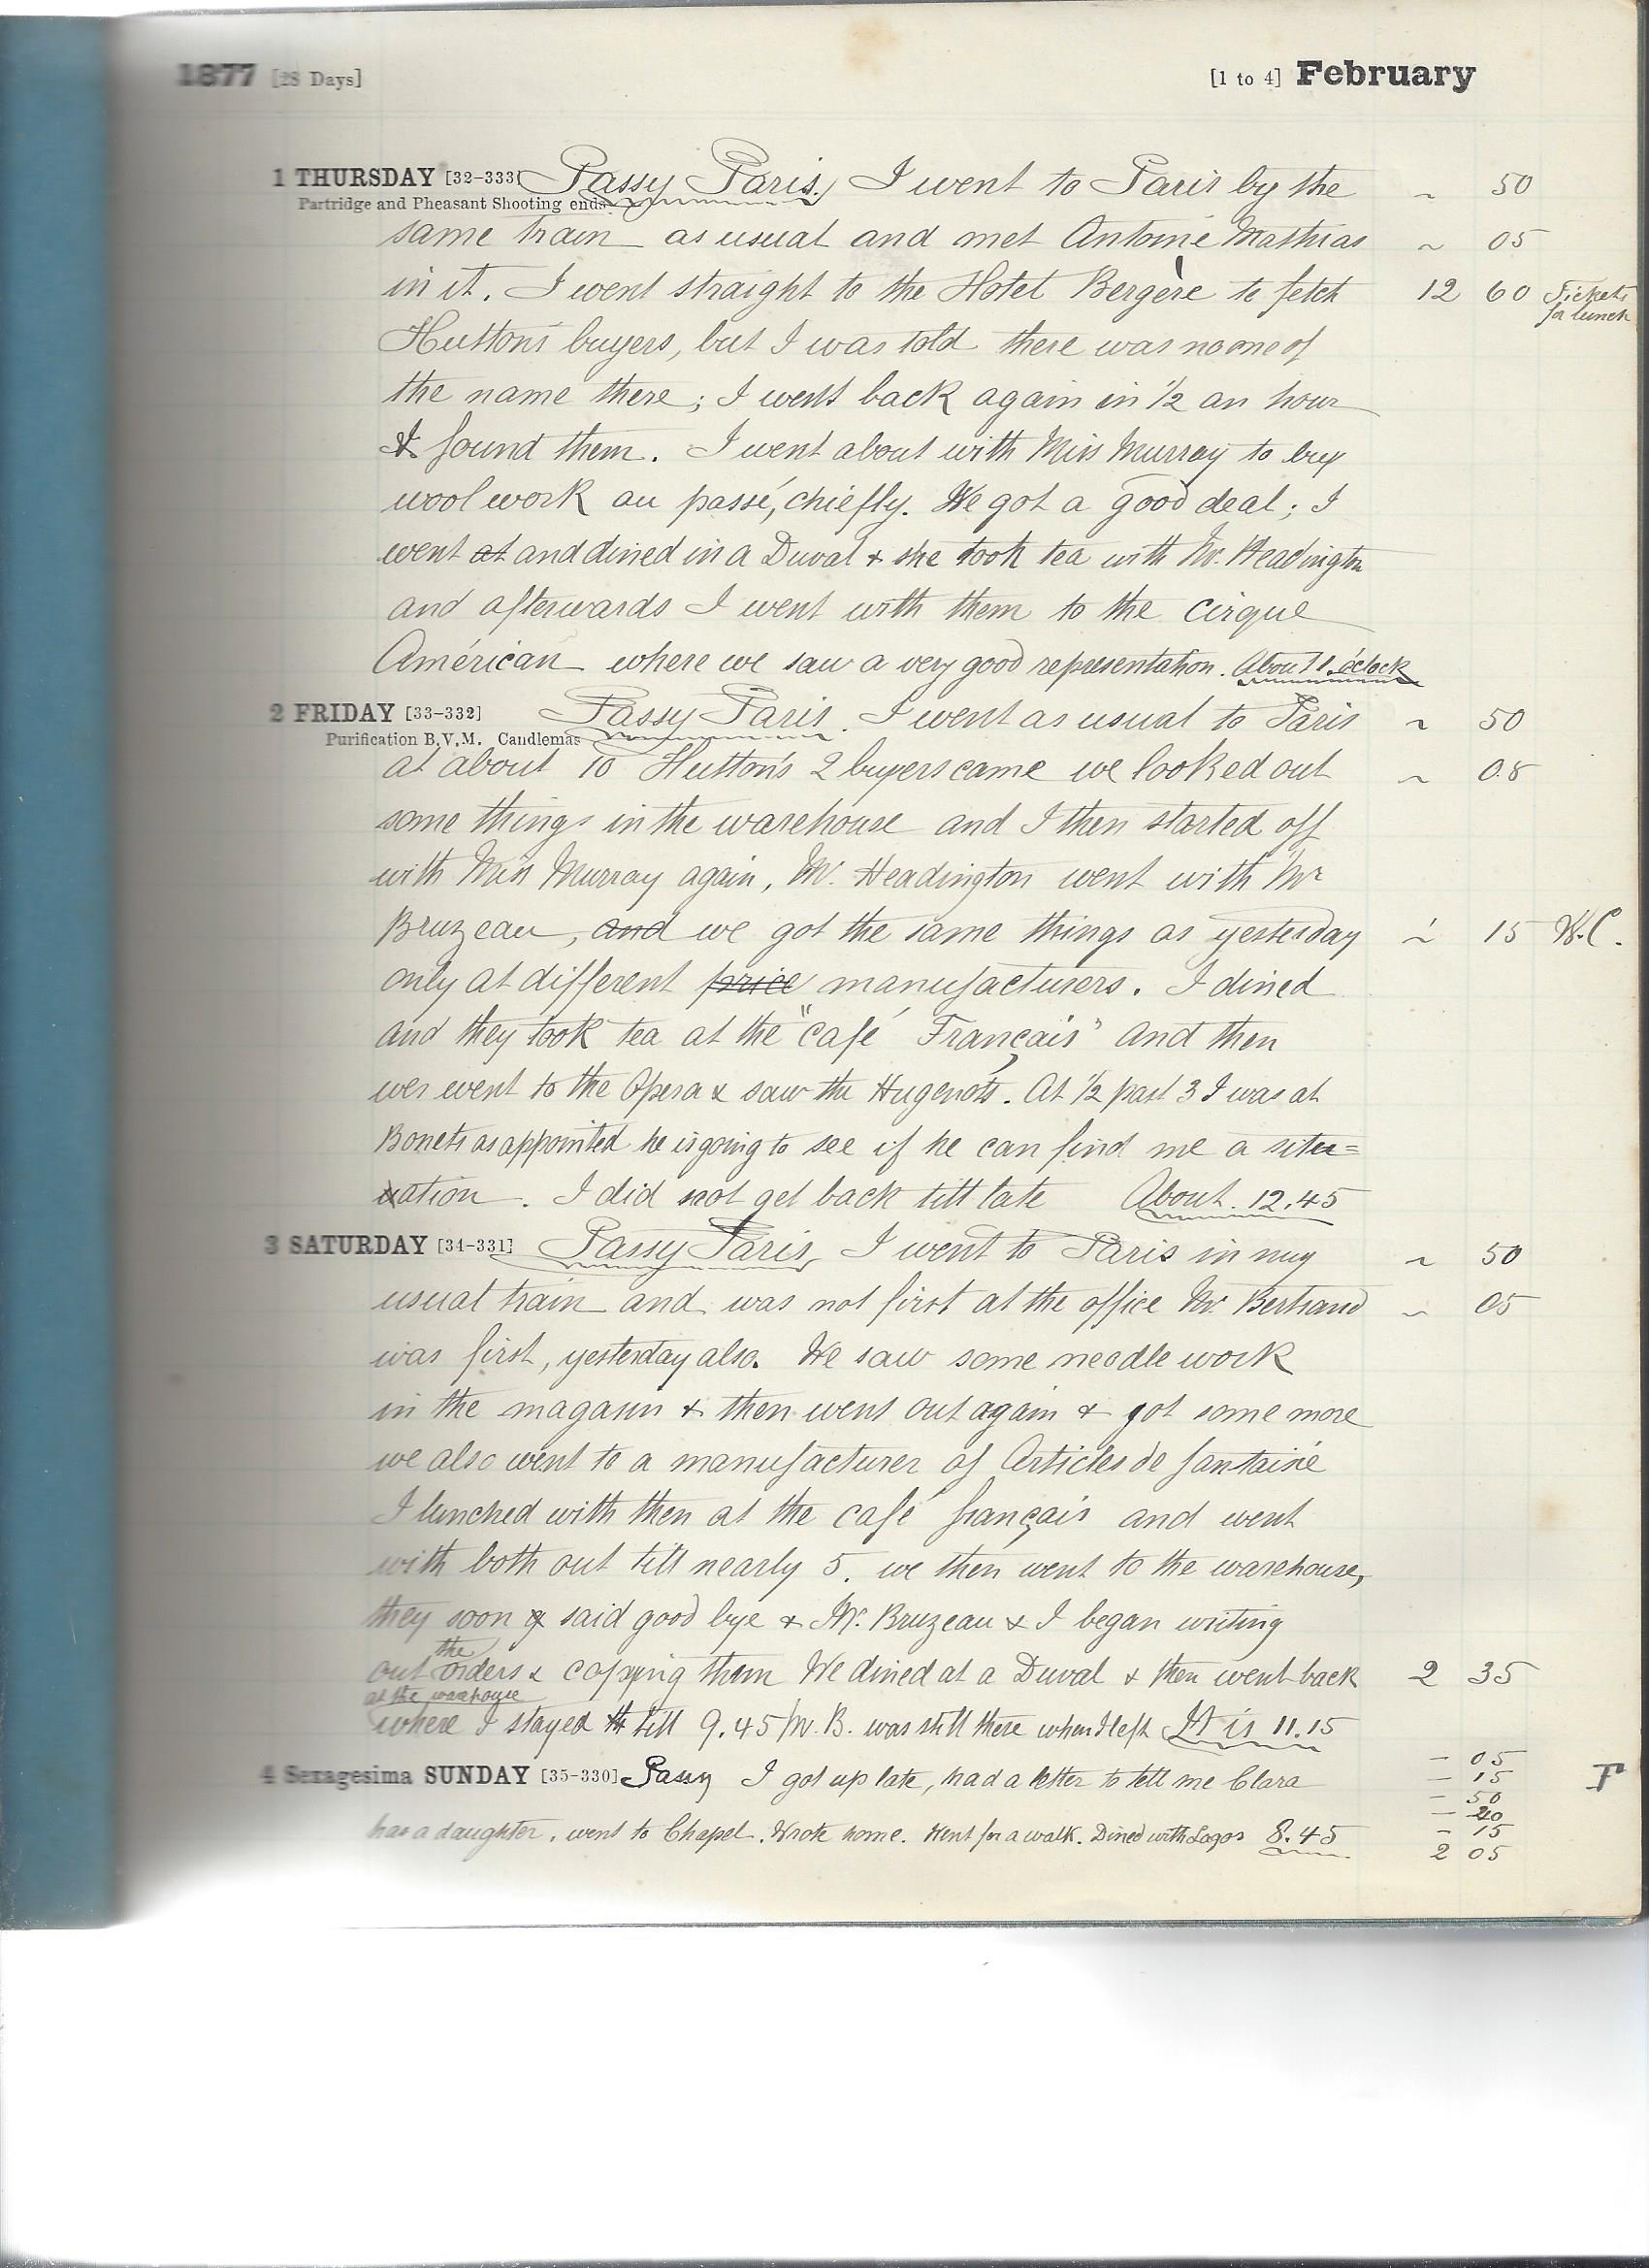 1877 [28 Days] [1 to 4] February
1 THURSDAY [32-333] Passy Paris. I went to Paris by the ~ 50
Partridge and Pheasant Shooting ends
same train as usual and met Antoine Mathias ~ 05
in it. I went straight to the Hotel Bergère to fetch 12 60 Tickets
for lunch
Hutton's buyers, but I was told there was no one of
the name there; I went back again in 1/2 an hour
& found them. I went about with Miss Murray to buy
wool work au passé, chiefly. We got a good deal; I
went at and dined in a Duval & she took tea with Mr. Headington
and afterwards I went with them to the cirque
Américan where we saw a very good representation. About 1 o'clock
2 FRIDAY [33-332] Passy Paris. I went as usual to Paris ~ 50
Purification B.V.M. Candlemas
at about 10 Hutton's 2 buyers came we looked out ~ 05
some things in the warehouse and I then started off
with Miss Murray again, Mr. Headington went with Mr
Bruzeau, and we got the same things as yesterday ~ 15 W.C.
only at different price manufacturers. I dined
and they took tea at the "café Français" and then
we went to the Opera & saw the Hugenots. At 1/2 past 3 I was at
Bonets as appointed he is going to see if he can find me a situ=
uation. I did not get back till late About 12.45
3 SATURDAY [34-331] Passy Paris, I went to Paris in my ~ 50
usual train and was not first at the office Mr. Bertrand ~ 05
was first, yesterday also. We saw some needle work
in the magasin & then went out again & got some more
we also went to a manufacturer of Articles de fantaisie
I lunched with then at the café français and went
with both out till nearly 5. we then went to the warehouse,
they soon g said good bye & Mr. Bruzeau & I began writing
the
out orders & copying them We dined at a Duval & then went back 2 35
at the warehouse
where I stayed th till 9.45 Mr. B. was still there when I left It is 11.15
4 Sexagesima SUNDAY [35-330] Passy I got up late, had a letter to tell me Clara - 05
- 15 F
- 50
- 20
has a daughter. went to Chapel. Wrote home. Went for a walk. Dined with Lagos 8.45 - 15
2 05